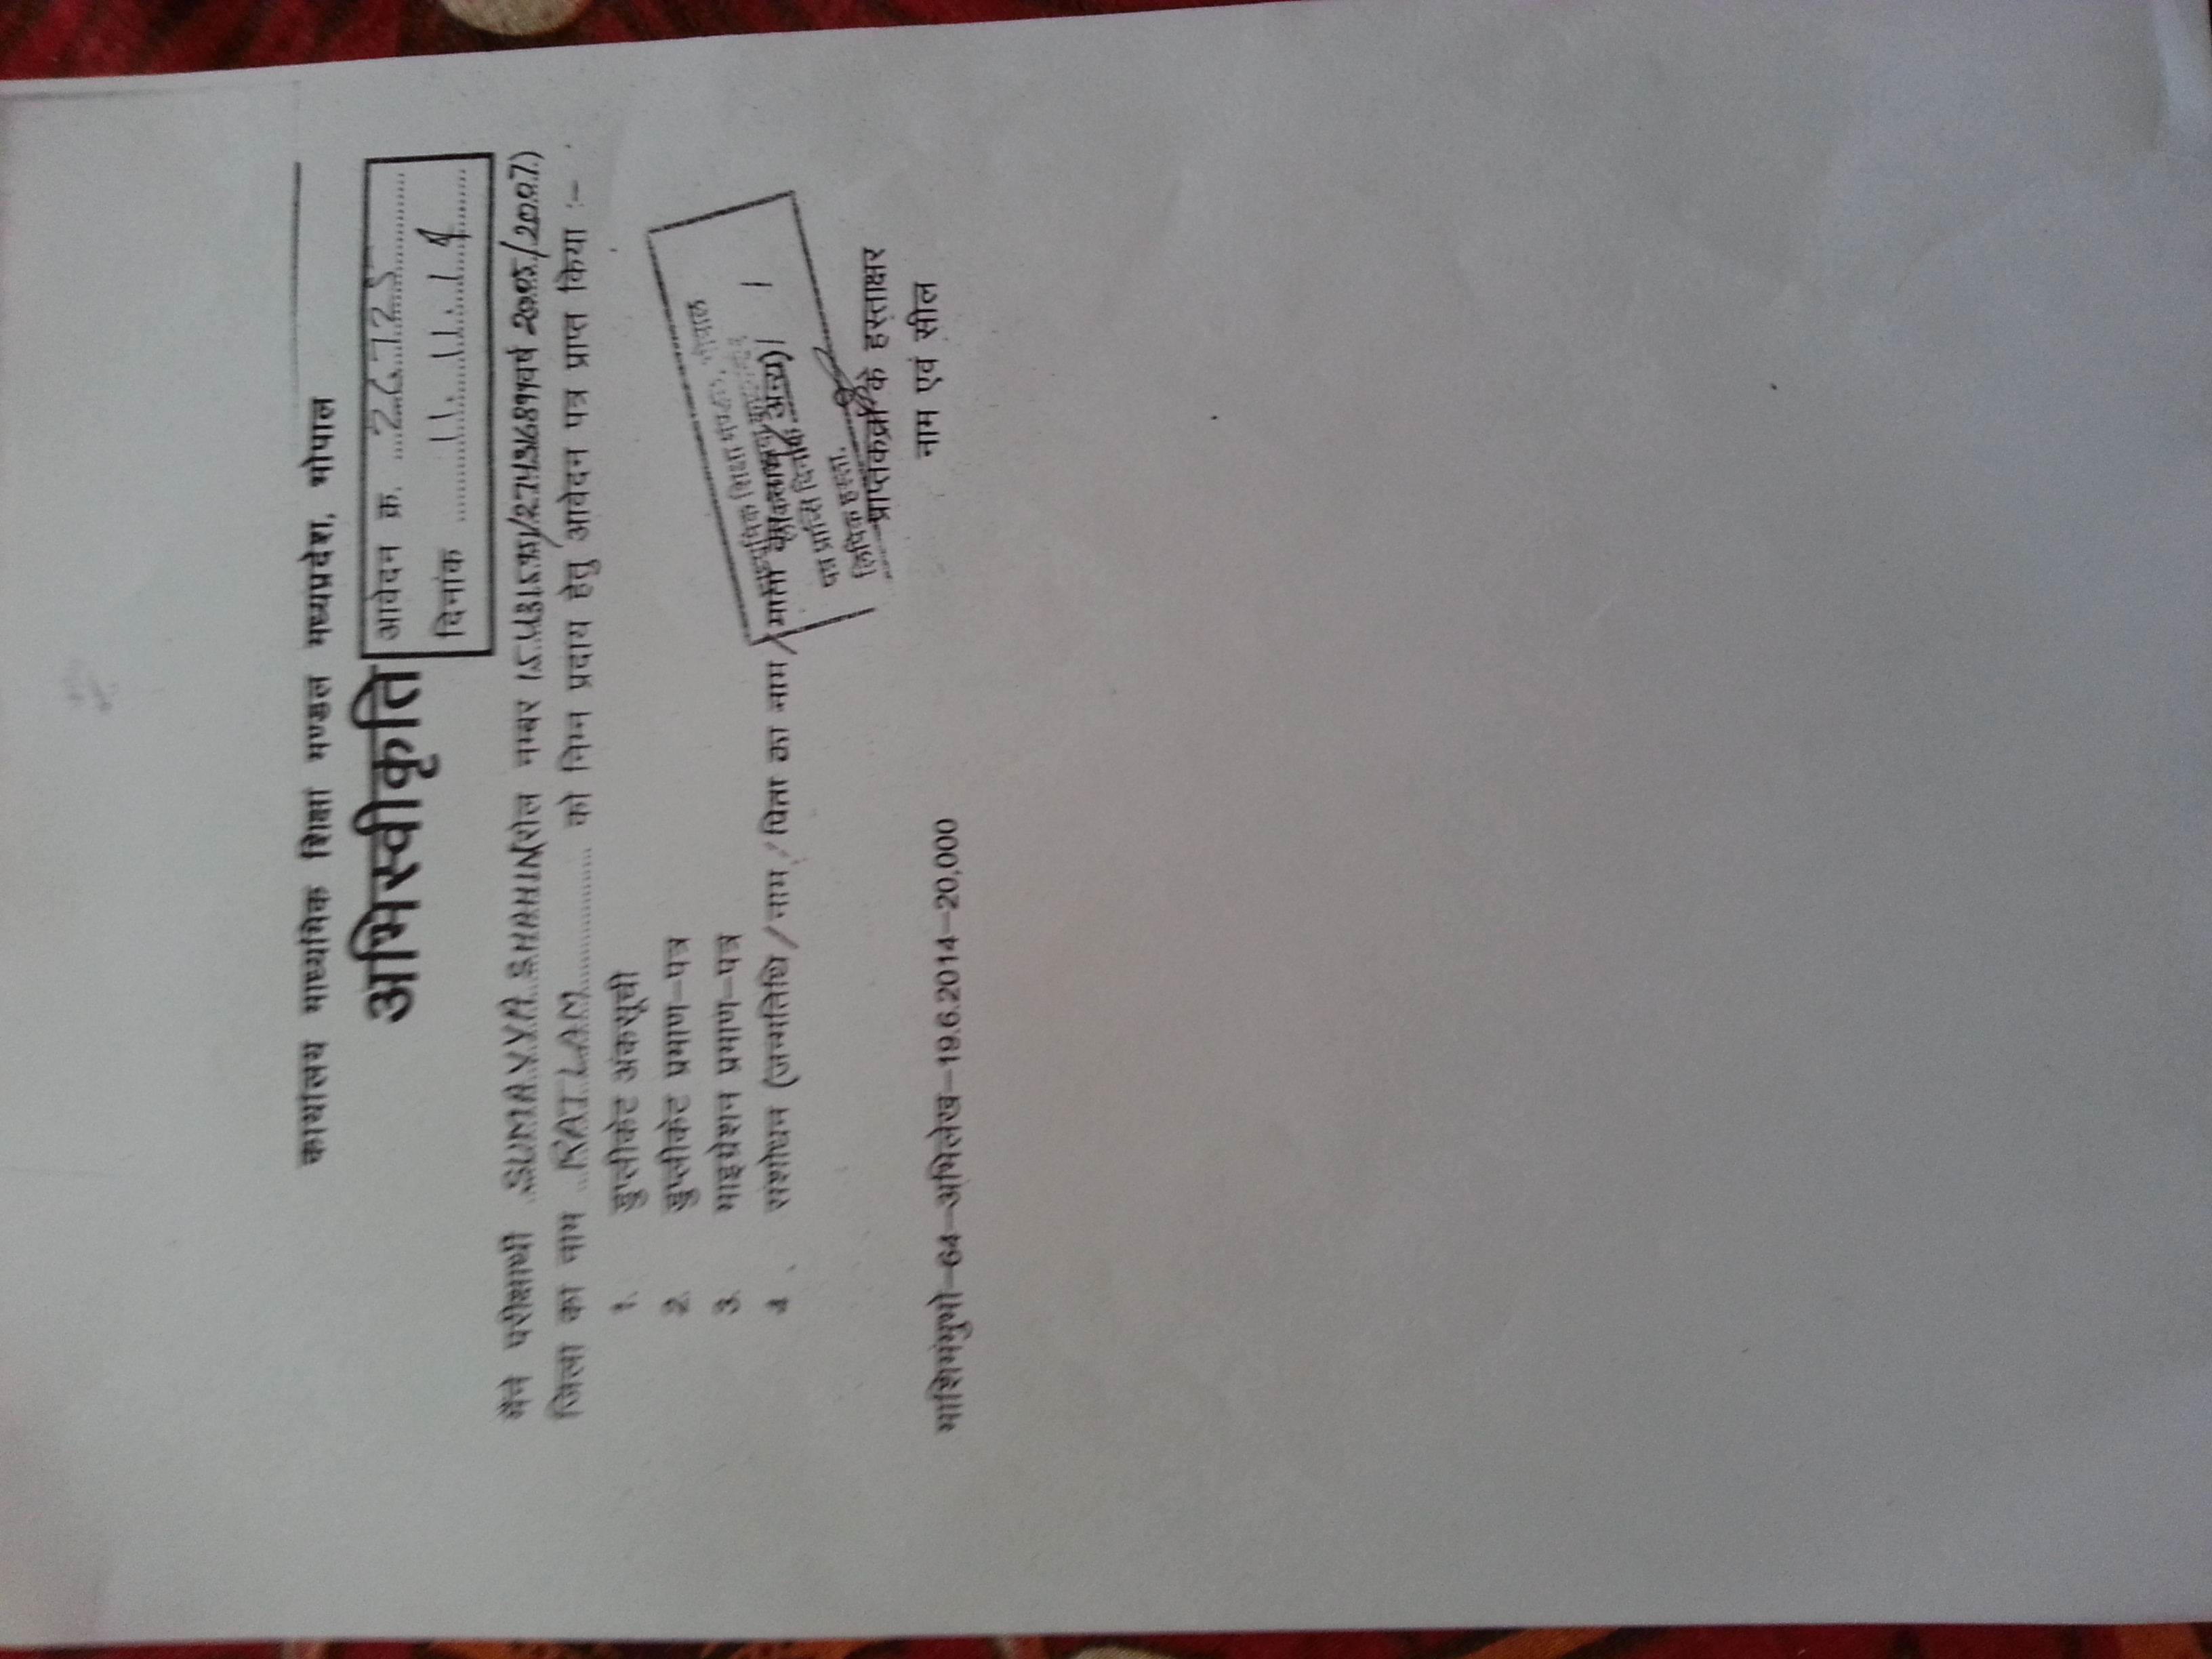 कार्यालय माध्यमिक शिक्षा मण्डल मध्यप्रदेश, भोपाल
अभिस्वीकृति
आवेदन क्र.
दिनांक 11.11.14
मैने परीक्षार्थी SUMAYYA SHAHIN (रोल नम्बर वर्ष /2007)
जिला का नाम RATLAM को निम्न प्रदाय हेतु आवेदन पत्र प्राप्त किया :–
1. डुप्लीकेट अंकसूची
2. डुप्लीकेट प्रमाण–पत्र
3. माइग्रेशन प्रमाण–पत्र
4. संशोधन (जन्मतिथि/नाम/पिता का नाम/माता
माध्यमिक शिक्षा मण्डल, भोपाल
पत्र प्राप्ति दिनांक
लिपिक हस्ता.
प्राप्तकर्ता के हस्ताक्षर
नाम एवं सील
माशिमंमुभो–64–अभिलेख–19.6.2014–20,000